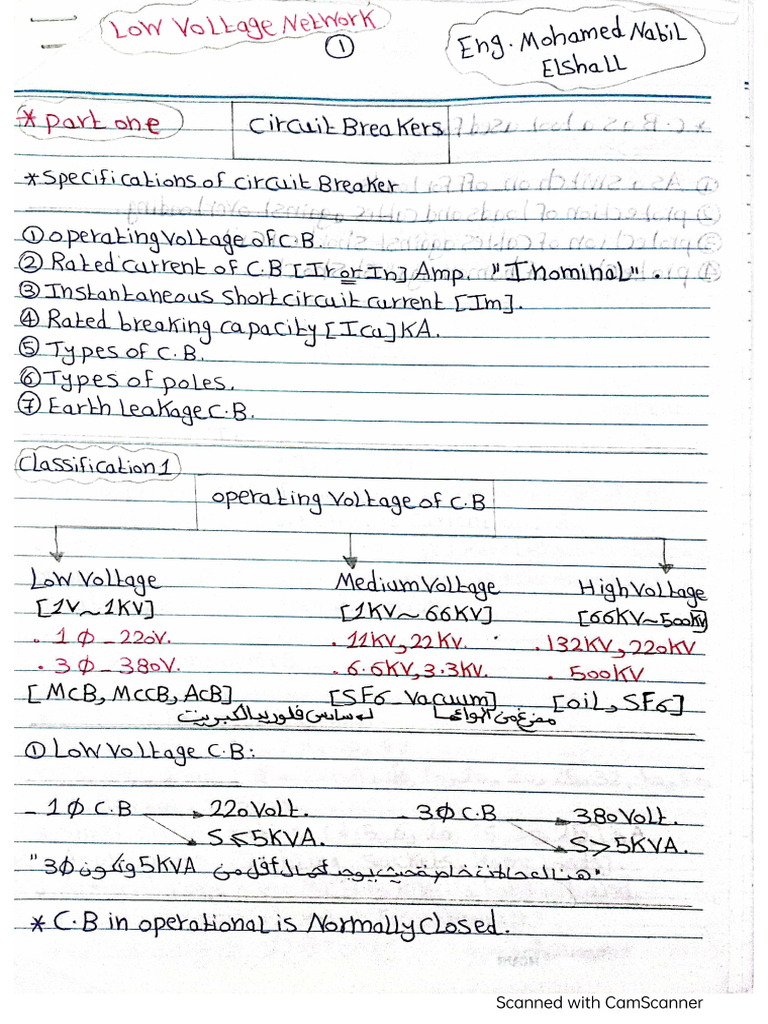 Low Voltage Network
①
Eng. Mohamed Nabil
Elshall
* Part one
Circuit Breakers
* Specifications of circuit Breaker
① operating voltage of C.B.
② Rated current of C.B [Ir or In] Amp. "I nominal".
③ Instantaneous short circuit current [Im].
④ Rated breaking capacity [Icu] KA.
⑤ Types of C.B.
⑥ Types of poles.
⑦ Earth Leakage C.B.
Classification 1
operating Voltage of C.B
Low Voltage Medium Voltage High Voltage
[1V ~ 1KV] [1KV ~ 66KV] [66KV ~ 500KV]
. 1Φ - 220V. . 11KV, 22KV. . 132KV, 220KV
. 3Φ - 380V. . 6.6KV, 3.3KV. . 500KV
[MCB, MCCB, ACB] [SF6 - Vacuum] [oil, SF6]
سادس فلوريد الكبريت مفرغ من الهواء
① Low Voltage C.B:
- 1Φ C.B 220 Volt. - 3Φ C.B 380 Volt.
S ≤ 5KVA. S > 5KVA.
"هناك حالات خاصة حيث يوجد أحمال أقل من 5KVA وتكون 3Φ"
* C.B in operational is Normally Closed.
Scanned with CamScanner